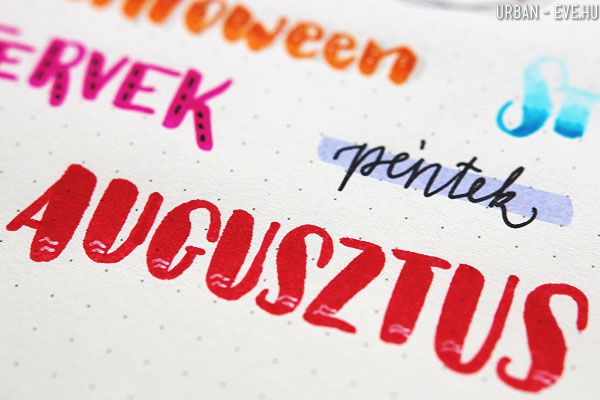 URBAN - EVE.HU
Halloween
TERVEK
péntek
AUGUSZTUS